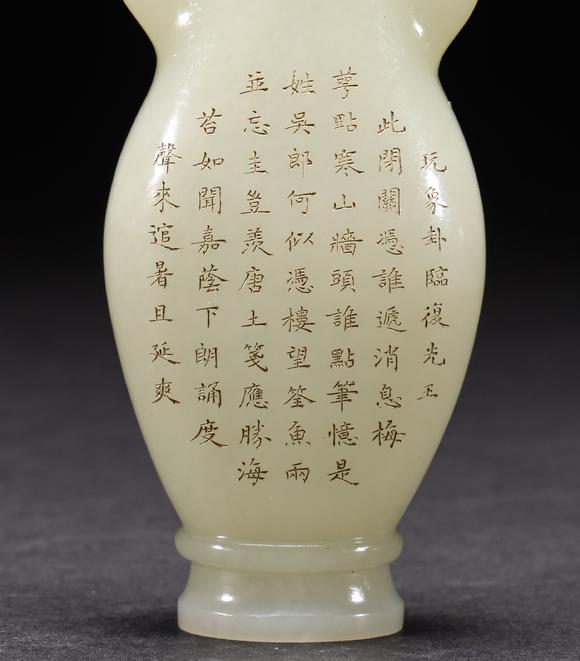 玩象卦臨復先王
此閉關憑誰遞消息梅
萼點寒山牆頭誰點筆憶是
姓吳郎何似憑樓望筌魚兩
並忘圭豈羨唐土箋應勝海
苔如聞嘉蔭下朗誦度
聲來逭暑且延爽